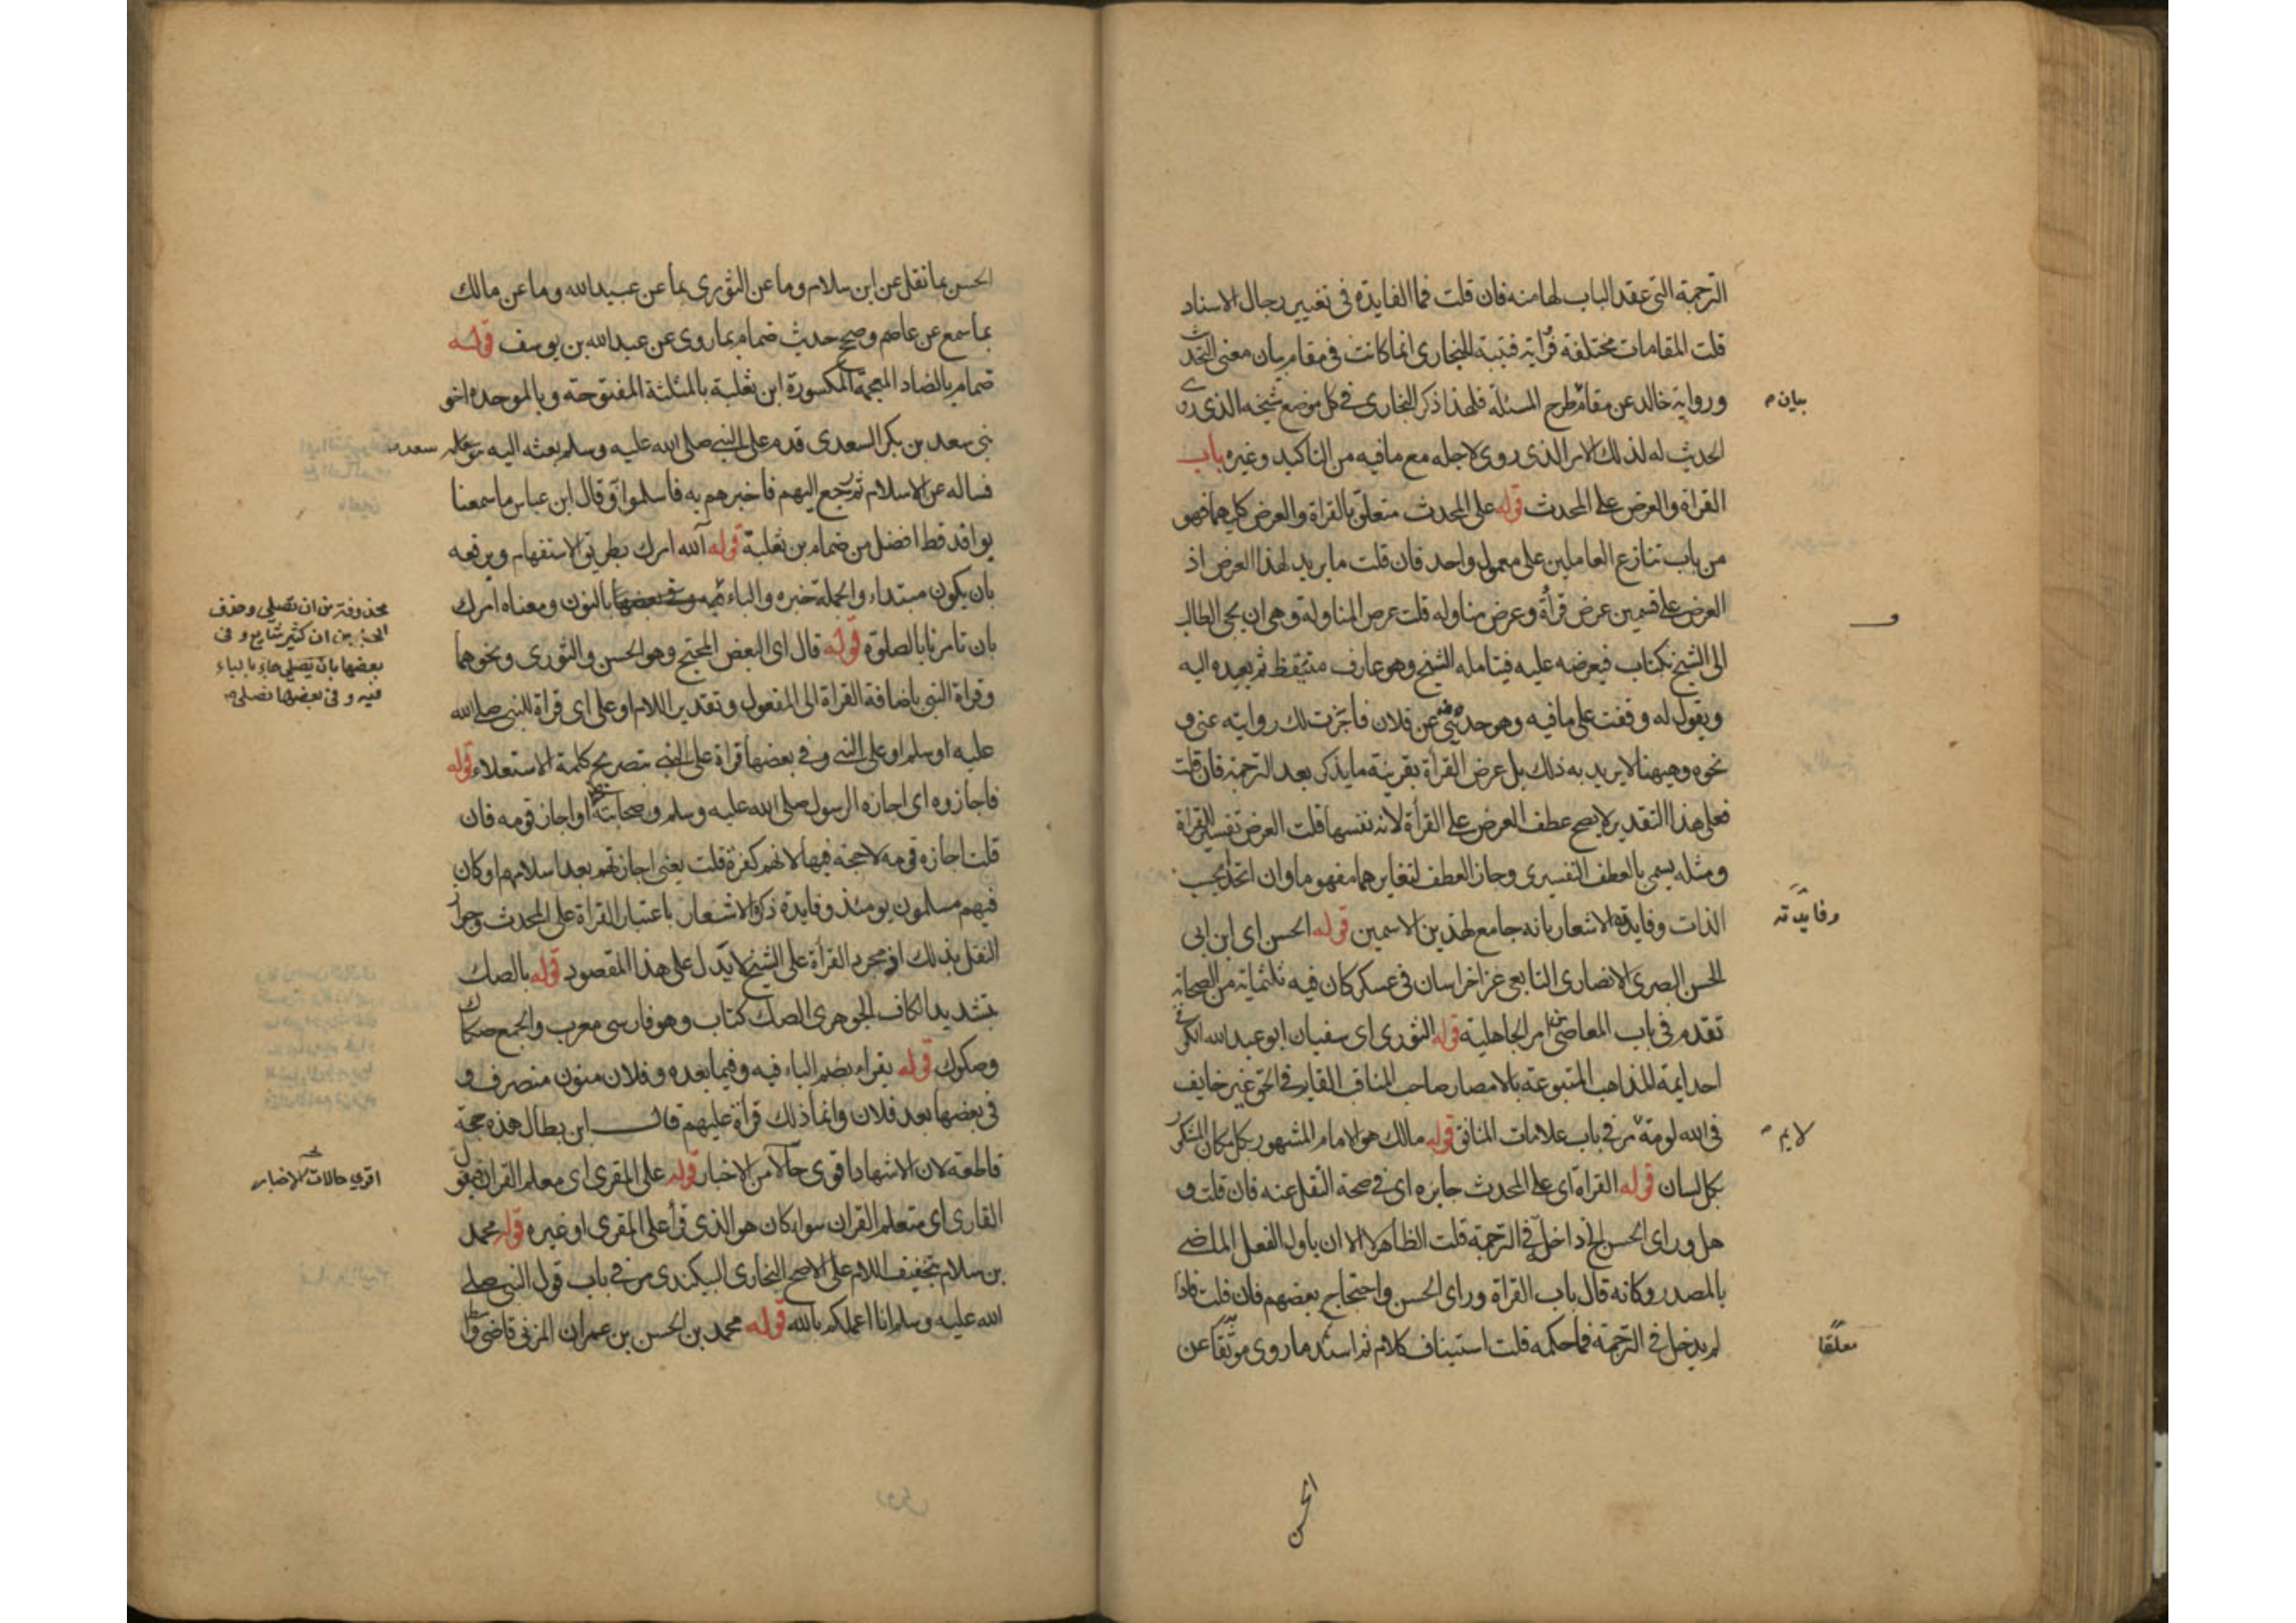 الترجمة التى عقد الباب لها منه فان قلت فما الفايدة فى تغيير رجال الاسناد
قلت المقامات مختلفة قراية قتيبة للبخارى انما كانت فى مقام بيان معنى التحديث
ورواية خالد عن مقام طرح المسئلة فلهذا ذكر البخارى فى كل موضع شيخه الذى روى
بيان
الحديث له لذلك الامر الذى روى لاجله مع ما فيه من التاكيد وغيره باب
القراة والعرض على المحدث قوله على المحدث متعلق بالقراة والعرض كليهما فهو
من باب تنازع العاملين على معمول واحد فان قلت ما يريد لهذا العرض اذ
العرض على قسمين عرض قرأة وعرض مناوله قلت عرض المناولة وهى ان يجى الطالب
و
الى الشيخ بكتاب فيعرضه عليه فيتامله الشيخ وهو عارف متيقظ ثم يعيده اليه
ويقول له وقفت على ما فيه وهو حديثى عن فلان فاجزت لك روايته عنى و
نحوه وهيهنا لا يريد به ذلك بل عرض القرأة بقرينة ما يذكر بعد الترجمة فان قلت
فعلى هذا التقدير لا يصح عطف العرض على القرأة لانه نفسها قلت العرض تفسير القراة
ومثله يسمى بالعطف التفسيرى وجاز العطف لتغايرهما مفهوما وان اتحدا بحسب
الذات وفايدة الاشعار بانه جامع لهذين الاسمين قوله الحسن اى ابن ابى
وفايدته
الحسن البصرى الانصارى التابعى غزا خراسان فى عسكر كان فيه ثلثماية من الصحابة
تقدم فى باب المعاصى من امر الجاهلية قوله الثورى اى سفيان ابو عبد الله الكوفى
احد ايمة المذاهب المتبوعة بالامصار صاحب المناقب القايم فى الحق غير خايف
فى الله لومة مر فى باب علامات المنافق قوله مالك هو الامام المشهور بكل مكان المشكور
لايم
بكل لسان قوله القراة اى على المحدث جايزه اى فى صحة النقل عنه فان قلت و
هل وراى الحسن الخ داخل فى الترجمة قلت الظاهر لا الا ان ياول الفعل الماضى
بالمصدر وكانه قال باب القراة وراى الحسن واحتجاج بعضهم فان قلت فاذا
لم يدخل فى الترجمة فما حكمه قلت استيناف كلام ثم اسند ما روى موثقا عن
معلقا
الحسن
الحسن بما نقل عن ابن سلام وما عن الثورى بما عن عبيد الله وما عن مالك
بما سمع عن عاصم وصح حديث ضمام بما روى عن عبد الله بن يوسف قوله
ضمام بالضاد المعجمة المكسورة ابن ثعلبة بالمثلثة المفتوحة وبالموحده اخو
بنى سعد بن بكر السعدى قدم على النبى صلى الله عليه وسلم بعثه اليه سعد
فساله عن الاسلام ثم رجع اليهم فاخبرهم به فاسلموا وقال ابن عباس ما سمعنا
بوافد قط افضل من ضمام بن ثعلبة قوله آلله امرك بطريق الاستفهام ويرفعه
بان يكون مبتداء والجملة خبره والباء وفى بعضها بالنون ومعناه امرك
محذوفة من ان تصلى وحذف
الجر من ان كثير شايع و فى
بعضها بان تصلى جاء بالباء
فيه و فى بعضها نصلى
بان تامرنا بالصلوة قوله قال اى البعض المحتج وهو الحسن والثورى ونحوهما
وقراة النبى باضافة القراة الى المفعول وتقدير اللام او على اى قراة للنبى صلى الله
عليه او سلم او على النبى وفى بعضها قراة على النبى بتصريح كلمة الاستعلاء قوله
فاجازوه اى اجازه الرسول صلى الله عليه وسلم وصحابته او اجاز قومه فان
قلت اجازه قومه لا حجة فيها لانهم كفرة قلت يعنى اجازتهم بعد اسلامهم او كان
فيهم مسلمون يومئذ وفايدة ذكره الاشعار باعتبار القراة على المحدث وجواز
النقل بذلك اذ مجرد القرأة على الشيخ لا يدل على هذا المقصود قوله بالصك
بتشديد الكاف الجوهرى الصك كتاب وهو فارسى معرب والجمع صكاك
وصكوك قوله يقراء بضم الياء فيه وفيما بعده وفلان منون منصرف و
فى بعضها بعد فلان وانما ذلك قراة عليهم قال ابن بطال هذه حجة
قاطعة لان الاشهاد اقوى حالا من الاخبار قوله على المقرى اى معلم القران فيقول
اقوى حالات الاخبار
القارى اى متعلم القران سواء كان هو الذى قرأ على المقرى او غيره قوله محمد
بن سلام بتخفيف اللام على الاصح البخارى البيكندى مر فى باب قول النبى صلى
الله عليه وسلم انا اعلمكم بالله قوله محمد بن الحسن بن عمران المزنى قاضى واسط